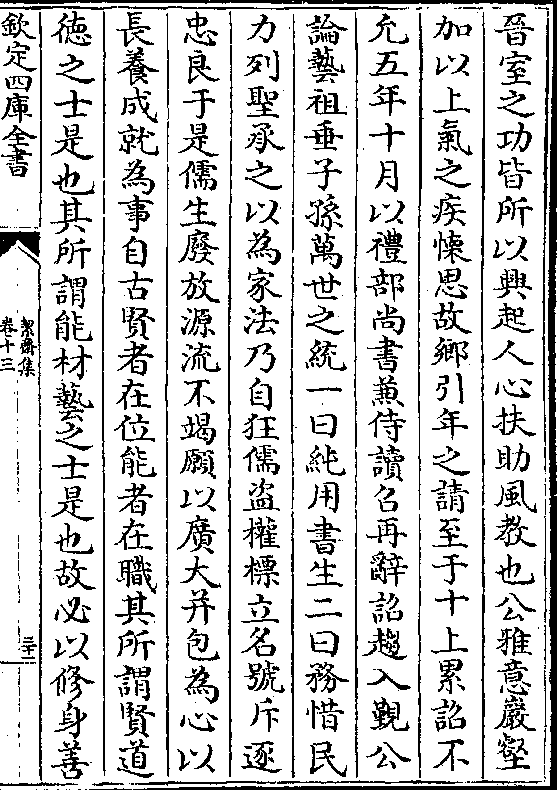 晉室之功皆所以興起人心扶助風教也公雅意巖壑
加以上氣之疾悚思故鄉引年之請至于十上累詔不
允五年十月以禮部尚書兼侍讀召再辭詔趨入覲公
論藝祖垂子孫萬世之統一曰純用書生二曰務惜民
力列聖承之以為家法乃自狂儒盜權標立名號斥逐
忠良于是儒生廢放源流不竭願以廣大并包為心以
長養成就為事自古賢者在位能者在職其所謂賢道
徳之士是也其所謂能材藝之士是也故必以修身善
欽定四庫全書
絜齋集
卷十三
二十二